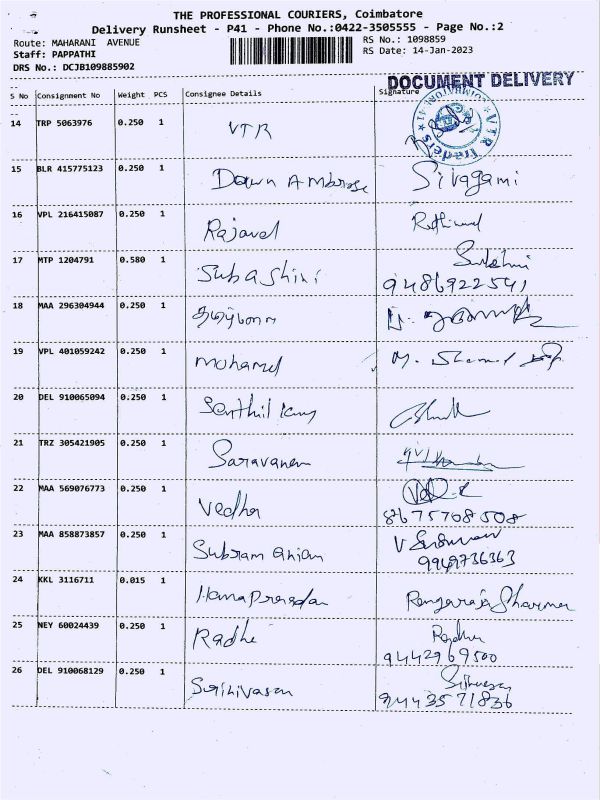 THE PROFESSIONAL COURIERS, Coimbatore
Delivery Runsheet - P41 - Phone No.:0422-3505555 - Page No.:2
Route: MAHARANI AVENUE
RS No.: 1098859
Staff: PAPPATHI
RS Date: 14-Jan-2023
DRS No.: DCJB109885902
DOCUMENT DELIVERY
S No Consignment No Weight PCS Consignee Details Signature
14 TRP 5063976 0.250 1 VTR
VTR Traders
15 BLR 415775123 0.250 1 Dawn Ambrose Sivagami
16 VPL 216415087 0.250 1 Rajavel
17 MTP 1204791 0.580 1 Subashini
9486922541
18 MAA 296304944 0.250 1
19 VPL 401059242 0.250 1 Mohamed
20 DEL 910065094 0.250 1
21 TRZ 305421905 0.250 1 Saravanan
22 MAA 569076773 0.250 1 Vedha
8675708508
23 MAA 858873857 0.250 1 Subramanian
9949736363
24 KKL 3116711 0.015 1 Hamaprasadan Rangaraja Sharma
25 NEY 60024439 0.250 1 Radhe
9442969500
26 DEL 910068129 0.250 1 Srinivasan
9443571836